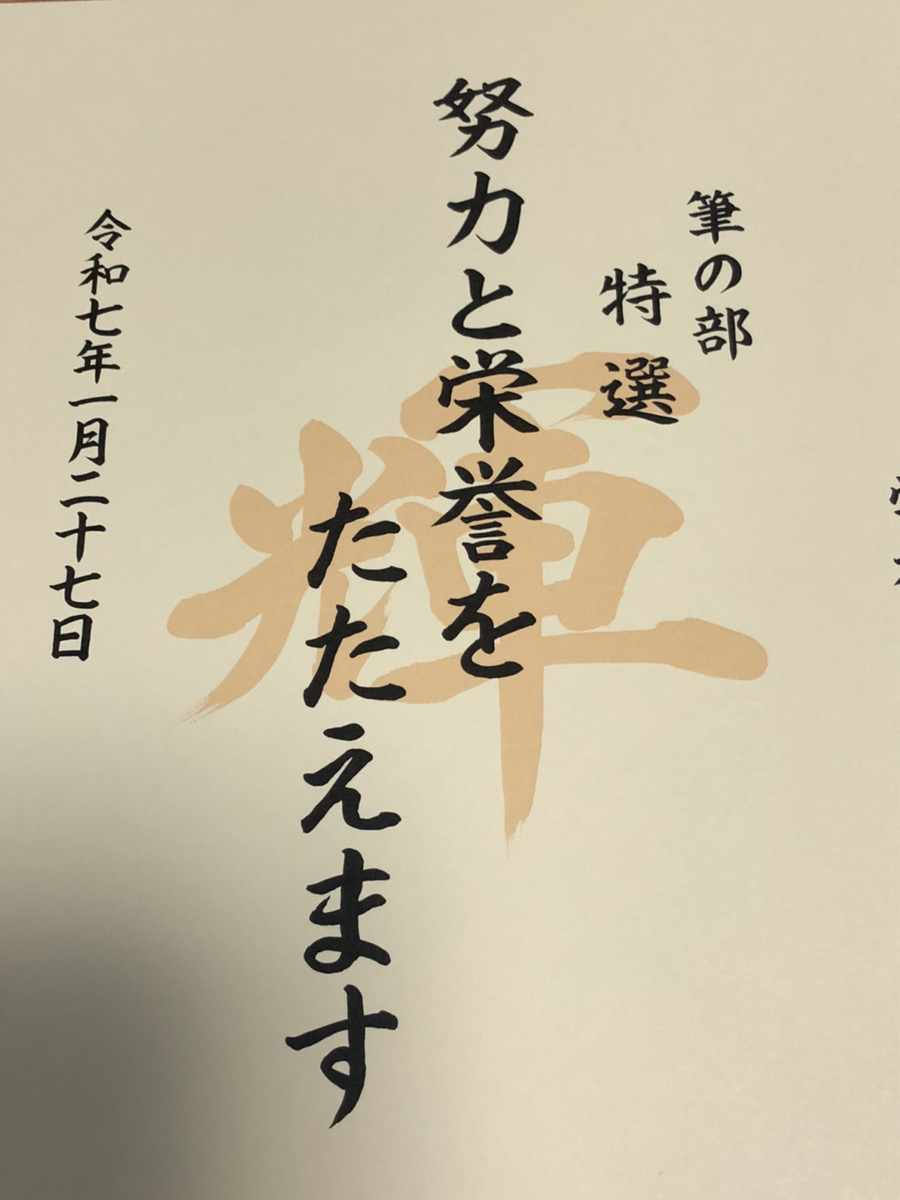 筆の部
特選
努力と栄誉を
たたえます
令和七年一月二十七日
輝